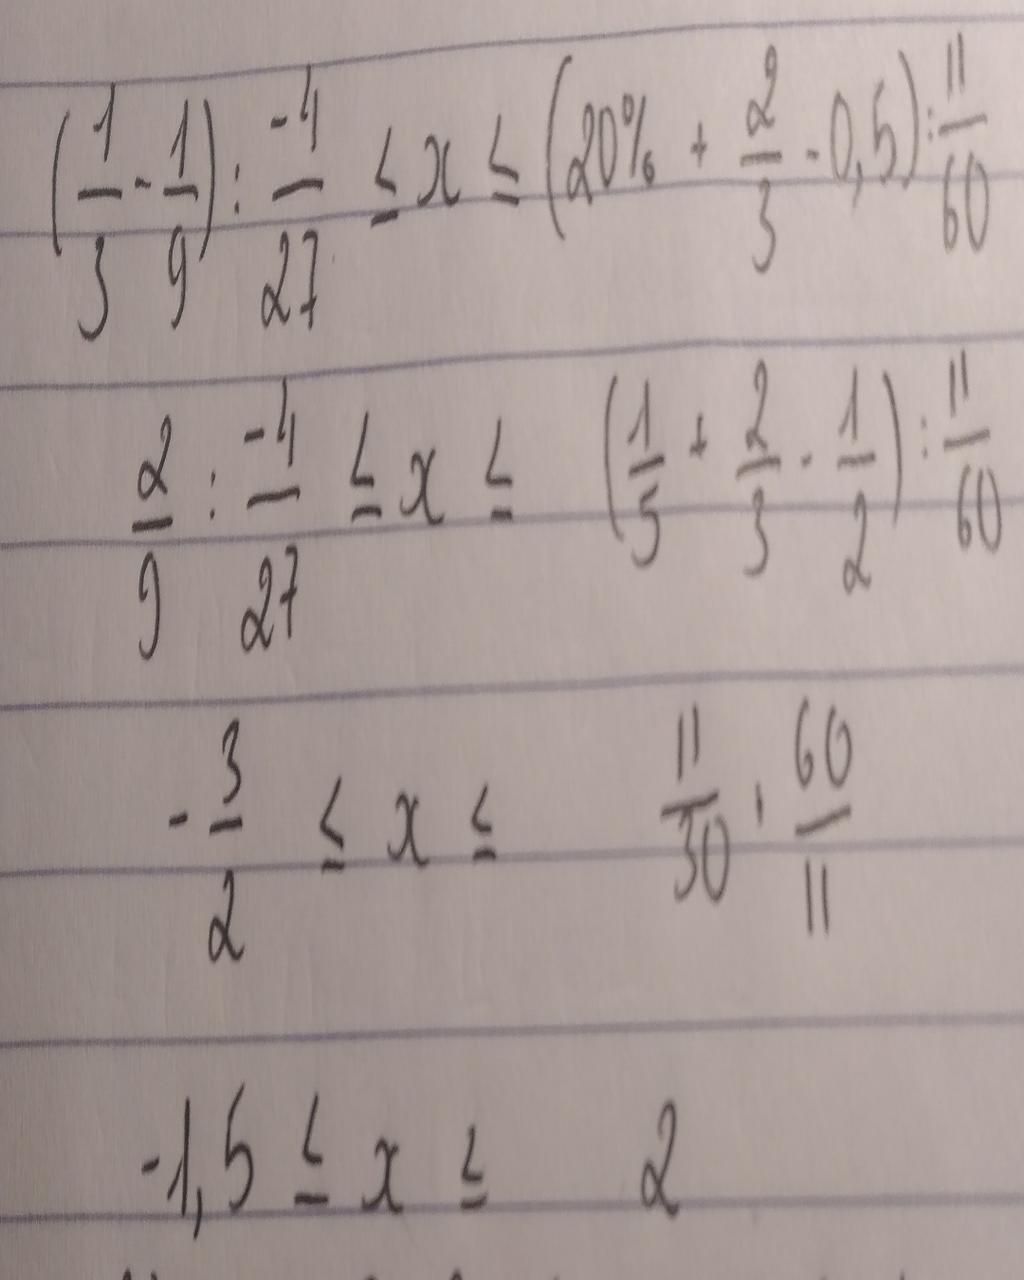 (1/3 - 1/9) : -4/27 ≤ x ≤ (20% + 2/3 - 0,5) : 11/60
2/9 : -4/27 ≤ x ≤ (1/5 + 2/3 - 1/2) : 11/60
- 3/2 ≤ x ≤ 11/30 . 60/11
-1,5 ≤ x ≤ 2